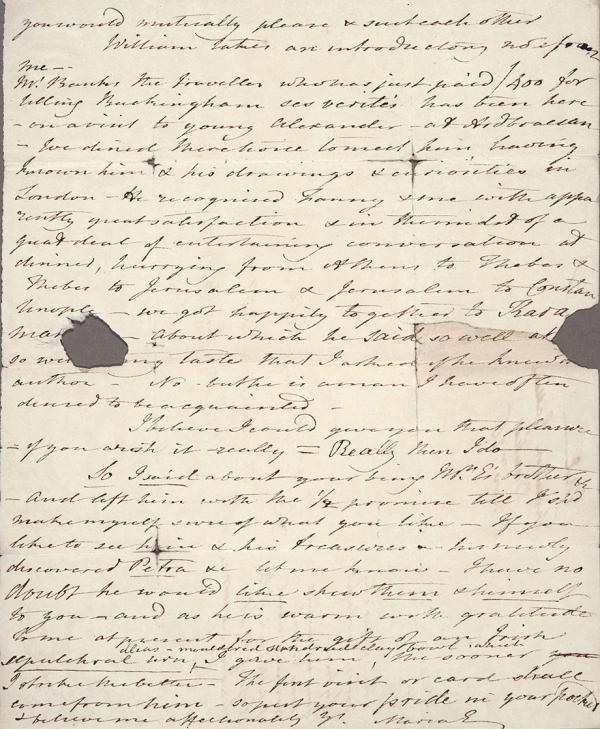 you would mutually please & suit each other
William takes an introductory note from
me —
Mr. Banks the traveller who has just paid £400 for
telling Buckingham ses verités has been here
- on a visit to young Alexander - at Ardbraccan
- We dined there twice to meet him having
known him & his drawings & curiosities in
London - He recognised Fanny & me with appa
rently great satisfaction & in the midst of a
great deal of entertaining conversation at
dinner, hurrying from Athens to Thebes &
Thebes to Jerusalem & Jerusalem to Constan
tinople - we got happily together to
about which he said so well
taste that I asked if he knew
author - No - but he is a man I have often
desired to be acquainted -
I believe I could give you that pleasure
- if you wish it really = Really then I do —
So I said about your being Mr. E's brother &c
- And left him with the 1/2 promise till I'd
make myself sure of what you like - If you
like to see him & his treasures - his newly
discovered Petra &c let me know - I have no
doubt he would like shew them & himself
to you - and as he is warm with gratitude
to me at present for the gift of an Irish
clay bowl which
sepulchral urn, I gave him, the sooner you
I strike the better - The first visit or card shall
come from him - so put your pride in your pocket
& believe me affectionately yrs. Maria E